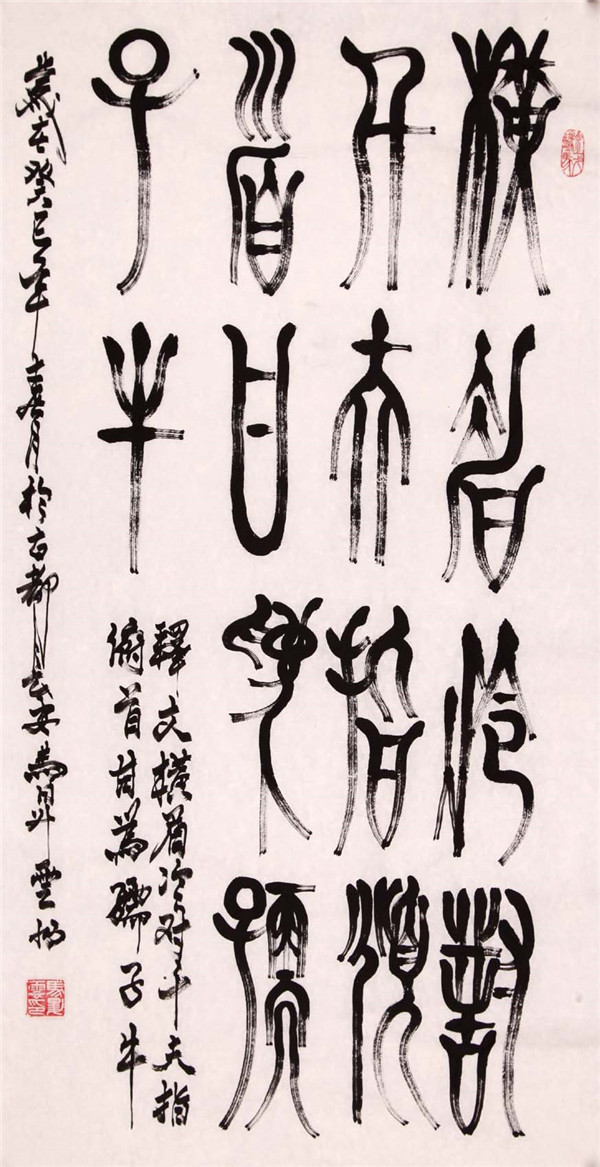 橫眉冷對
千夫指俯
首甘為孺
子牛
釋文橫眉冷对千夫指
俯首甘為孺子牛
歲在癸巳年春月於古都長安馬昇雲